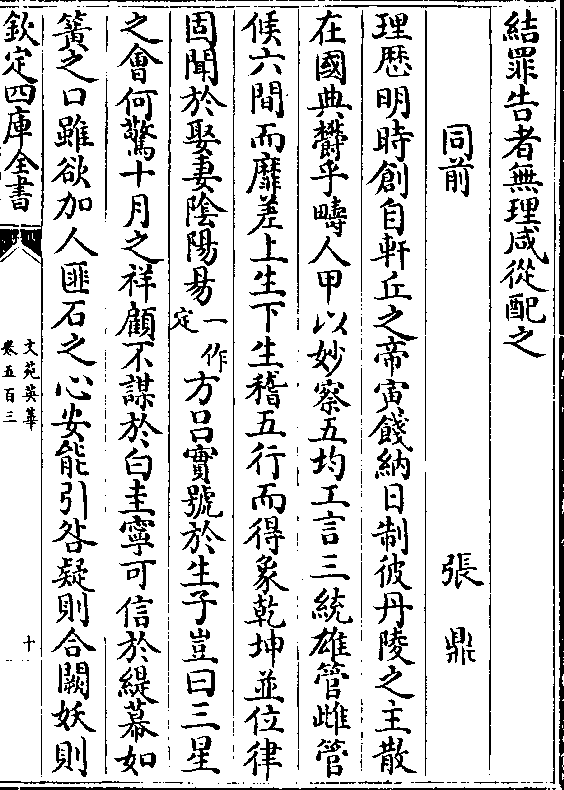 結罪告者無理咸從配之
同前 張鼎
理歴明時創自軒丘之帝寅餞納日制彼丹陵之主散
在國典欎乎疇人甲以妙察五均工言三統雄管雌管
候六間而靡差上生下生稽五行而得象乾坤並位律
固聞於娶妻陰陽易一作定方吕實號於生子豈曰三星
之會何驚十月之祥顧不謀於白圭寧可信於緹幕如
簧之口雖欲加人匪石之心安能引咎疑則合闕妖則
欽定四庫全書
文苑英華
卷五百三
十